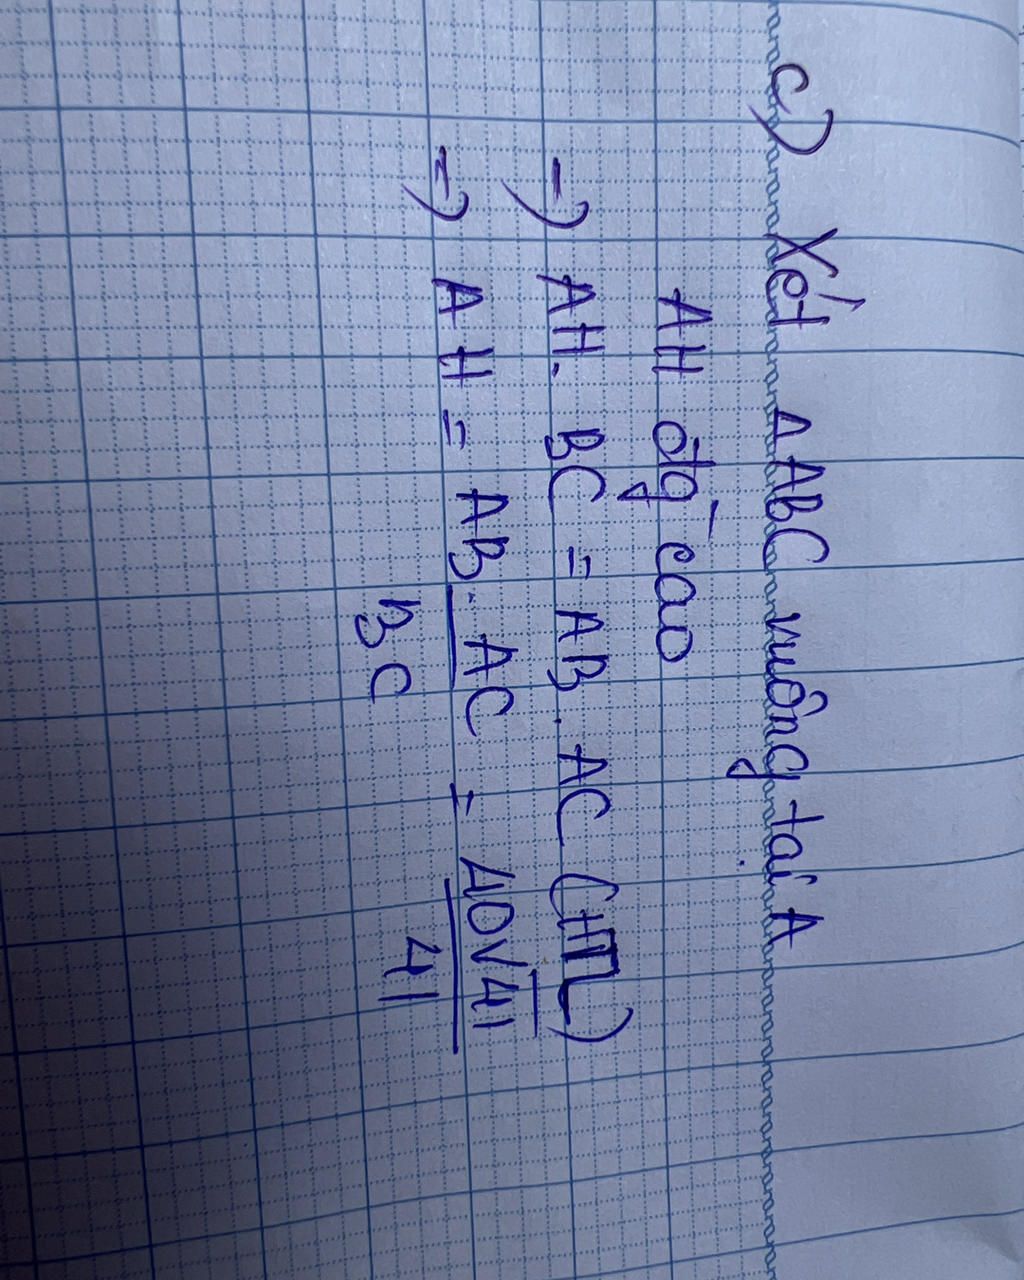 c) Xét ΔABC vuông tại A
AH đg̀ cao
=) AH. BC = AB. AC (HTL)
=) AH = AB. AC / BC = 40√41 / 41